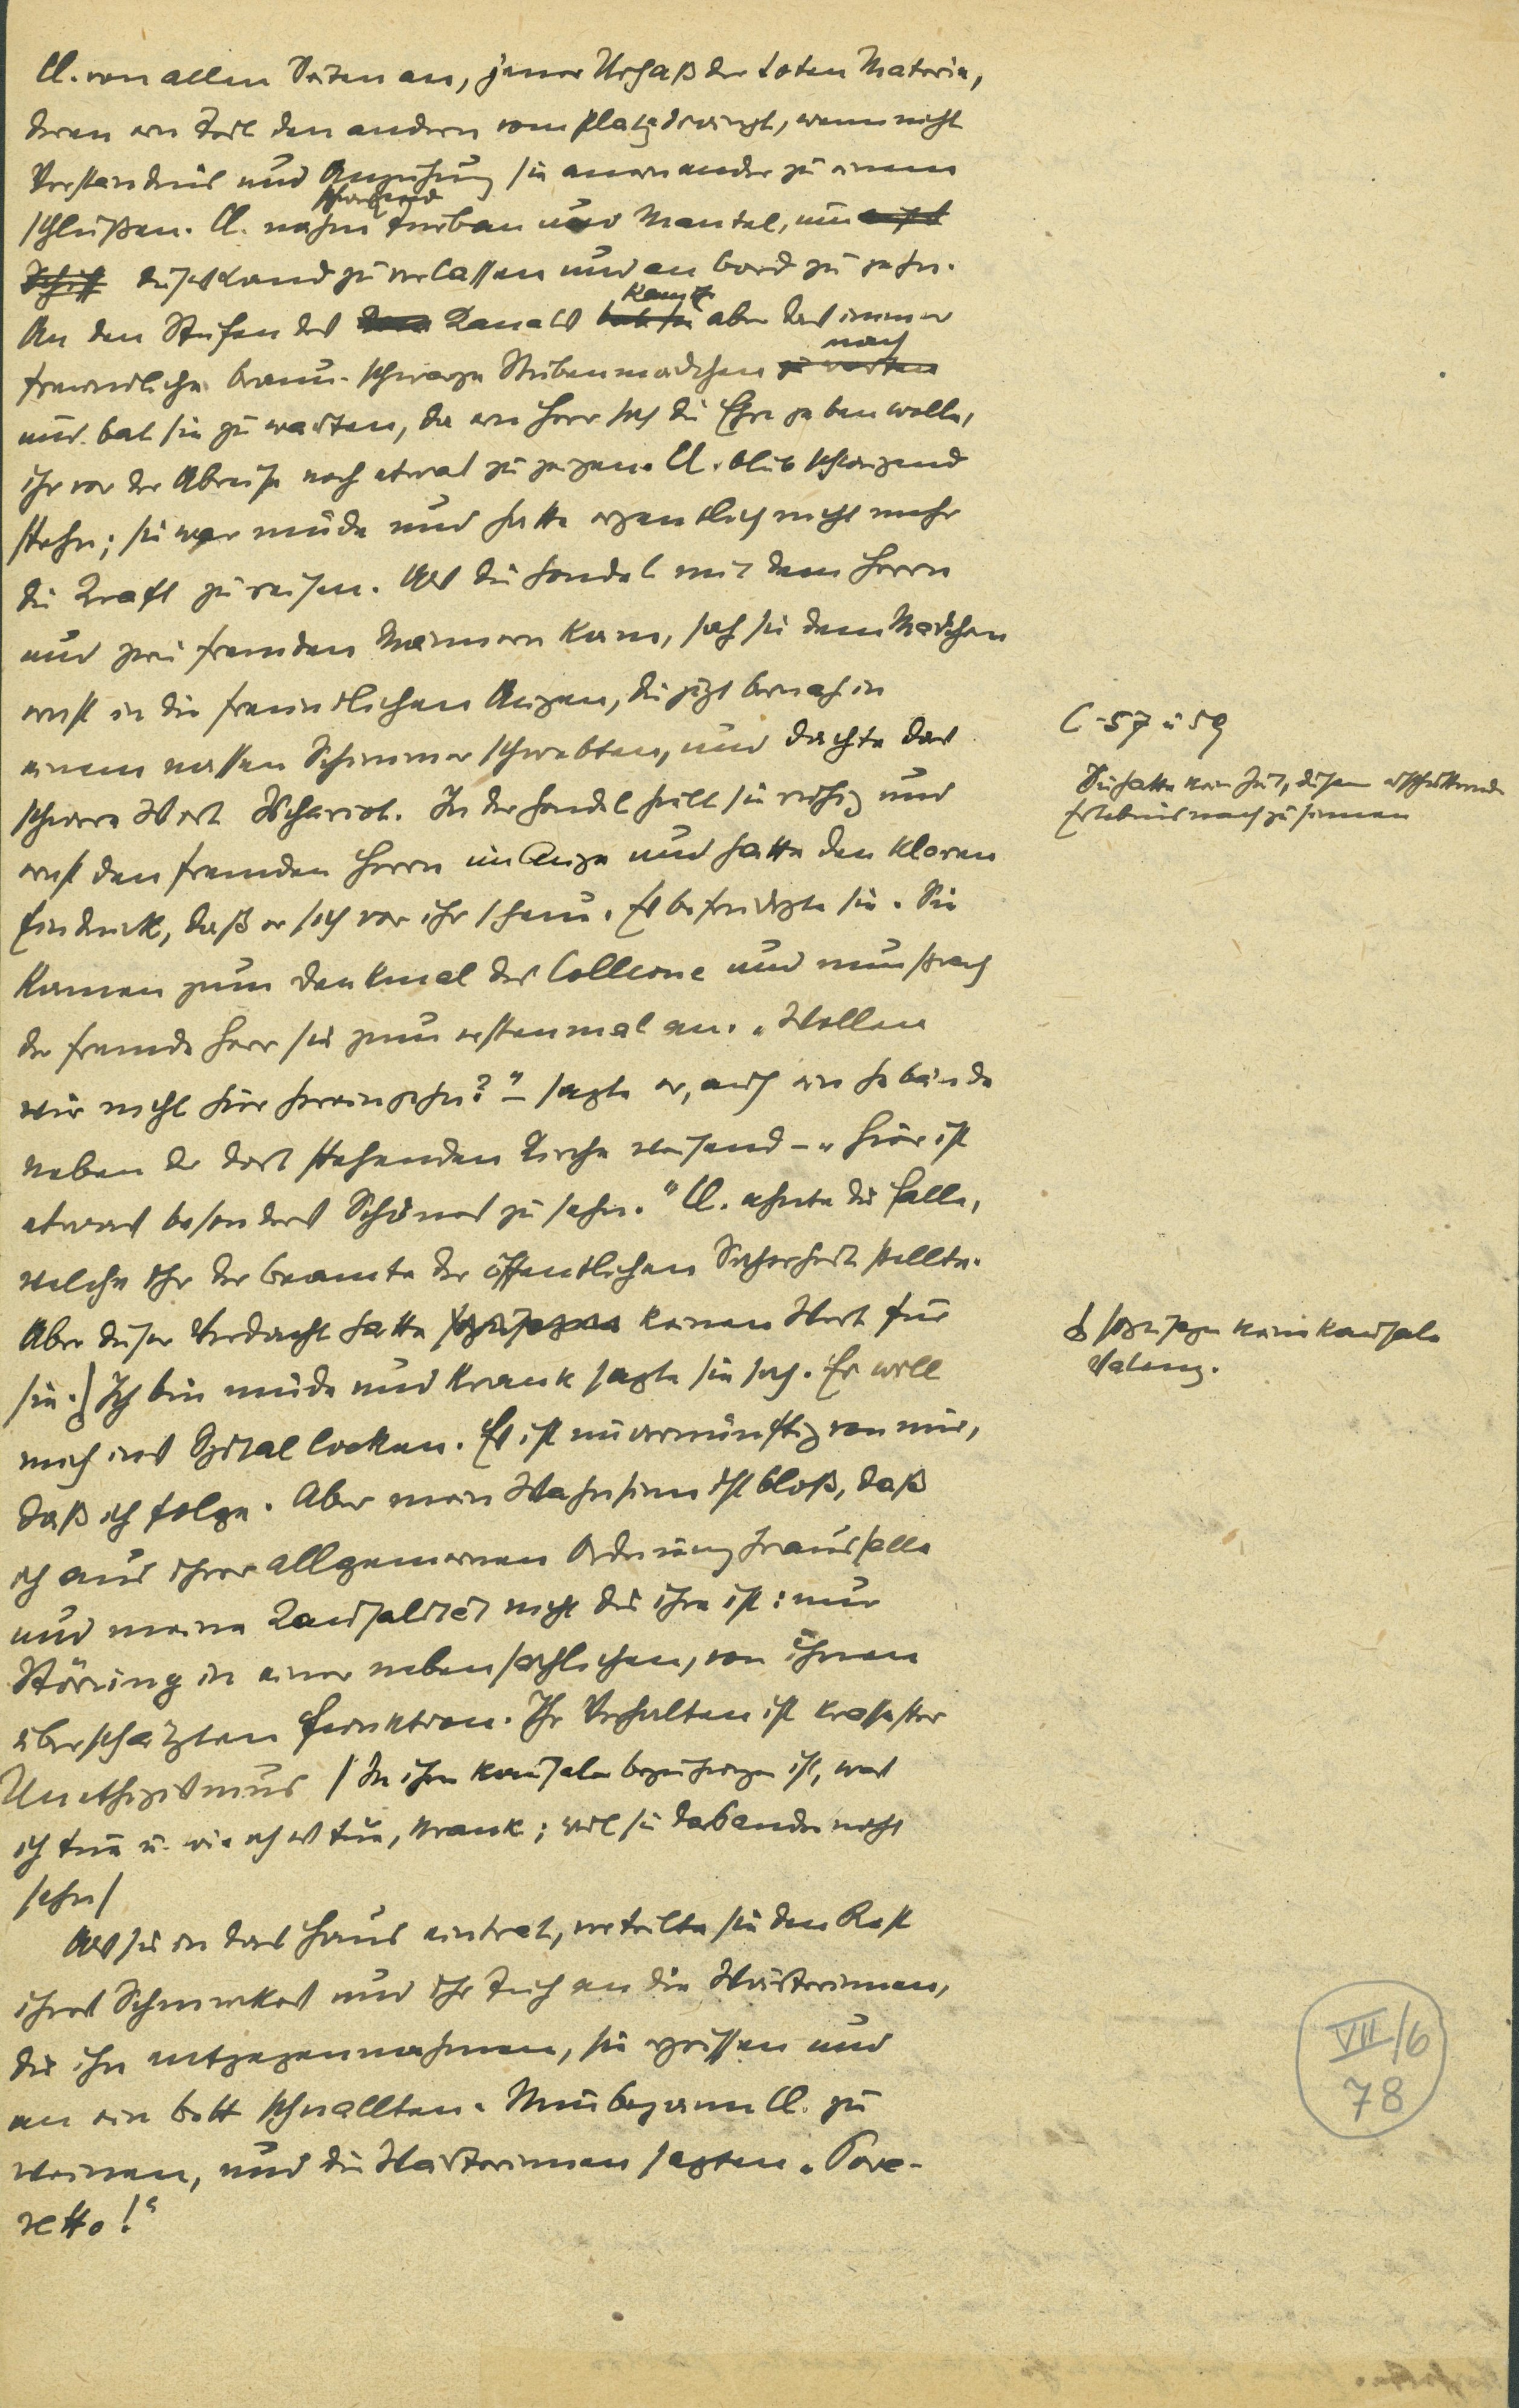 Cl. von allen Seiten an, jener Urhaß der toten Materie,
deren ein Teil den andern vom Platz drängt, wenn nicht
Verständnis und Anziehung sie aneinander zu einem
schließen. Cl. nahm schweigend Turban und Mantel, um aufs
Schiff dieses Land zu verlassen und an Bord zu gehn.
An den Stufen des Kanals bat sie kam aber das immer
freundliche braun-schwarze Stubenmädchen zu warten nach
und bat sie zu warten, da ein Herr sich die Ehre geben wolle,
ihr vor der Abreise noch etwas zu zeigen. Cl. blieb schweigend
stehn; sie war müde und hatte eigentlich nicht mehr
die Kraft zu reisen. Als die Gondel mit dem Herrn
und zwei fremden Männern kam, sah sie dem Mädchen
ernst in die freundlichen Augen, die jetzt beinah in
einem nassen Schimmer schwebten, und dachte das
schwere Wort Ischariot. In der Gondel hielt sie ruhig und
ernst den fremden Herrn im Auge und hatte den klaren
Eindruck, daß er sich vor ihr scheue. Es befriedigte sie. Sie
kamen zum Denkmal des Colleone und nun sprach
der fremde Herr sie zum erstenmal an. „Wollen
wir nicht hier hereingehn?" – sagte er, auf ein Gebäude
neben der dort stehenden Kirche weisend – „hier ist
etwas besonders Schönes zu sehn." Cl. ahnte die Falle,
welche ihr der Beamte der öffentlichen Sicherheit stellte.
Aber dieser Verdacht hatte sozusagen keinen Wert für
sie.} Ich bin müde und krank sagte sie sich. Er will
mich ins Spital locken. Es ist unvernünftig von mir,
daß ich folge. Aber mein Wahnsinn ist bloß, daß
ich aus ihrer allgemeinen Ordnung herausfalle
und meine Kausalität nicht die ihre ist: nur
Störung in einer nebensächlichen, von ihnen
überschätzten Funktion. Ihr Verhalten ist krassester
Unethizismus / In ihren kausalen Beziehungen ist, was
ich tue u. wie ich es tue, krank; weil sie das andre nicht
sehn/
Als sie in das Haus eintrat, verteilte sie den Rest
ihres Schmuckes und ihr Tuch an die Wärterinnen,
die ihn entgegennahmen, sie ergriffen und
an ein Bett schnallten. Nun begann Cl. zu
weinen, und die Wärterinnen sagten „Pove-
retto!"
C-57 u 59
Sie hatte kein Zeit, diesem erschütternden
Erlebnis nachzusinnen
sozusagen keine kausale
Valenz.
VII/6
78